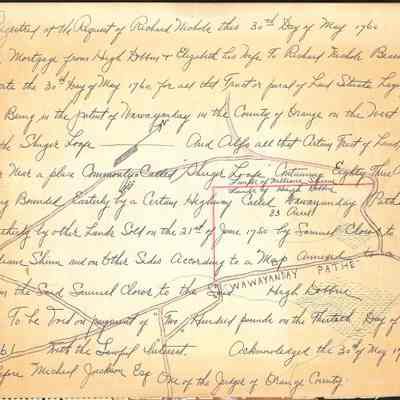 Registered at the Request of Richard Nichols this 30th Day of May 1760
Mortgage from Hugh Dobbin & Elizabeth his Wife To Richard Nichols Bear
Date the 30th Day of May 1760 for all that Tract or parcel of Land Situate Lying
Being in the patent of Wawayanda in the County of Orange on the West
the Sluger Loape And Allso all that Certain Tract of Land
N
or Near a place Commonly Called Sluger Loape Containing Eighty Three
Lands of William Shinn
Lands of Hugh Dobbin
33 Acres
ing Bounded Easterly by a Certain Highway Called Wawayanday Path
by other Lands Sold on the 21st of June 1750 by Samuel Clows to
liam Shinn and on Other Sides According to a Map Annexed to a
om the Said Samuel Clows to the Said Hugh Dobbin
WAWAYANDAY PATHE
To be Void on payment of Two Hundred pounds on the Thirtieth Day of
61 With the Lawful Interest. Acknowledged the 30th of May 17
efore Micheal Jackson Esq One of the Judges of Orange County